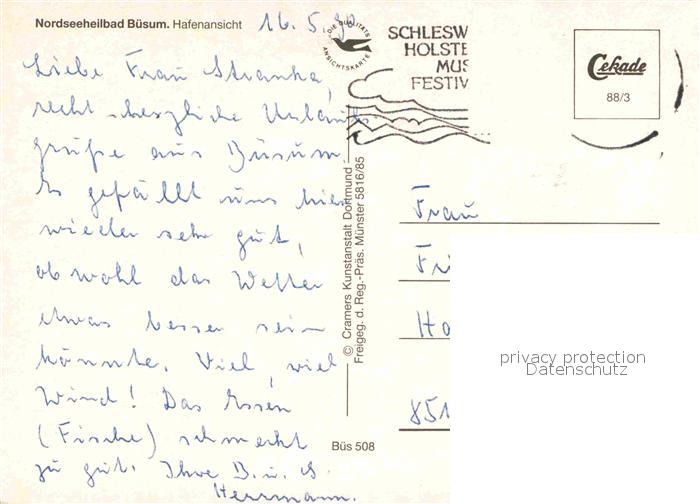 Nordseeheilbad Büsum. Hafenansicht
16. 5. 90
Liebe Frau Stranka,
recht herzliche Urlaubs-
grüße aus Büsum.
Es gefällt uns hier
wieder sehr gut,
obwohl das Wetter
etwas besser sein
könnte. Viel, viel
Wind! Das Essen
(Fische) schmeckt
zu gut. Ihre B. u. G.
Herrmann.
DIE QUALITÄTS
ANSICHTSKARTE
SCHLESW
HOLSTE
MUS
FESTIV
Cekade
88/3
© Cramers Kunstanstalt Dortmund
Freigeg. d. Reg.-Präs. Münster 5816/85
Büs 508
Frau
Fri
Ha
851
privacy protection
Datenschutz